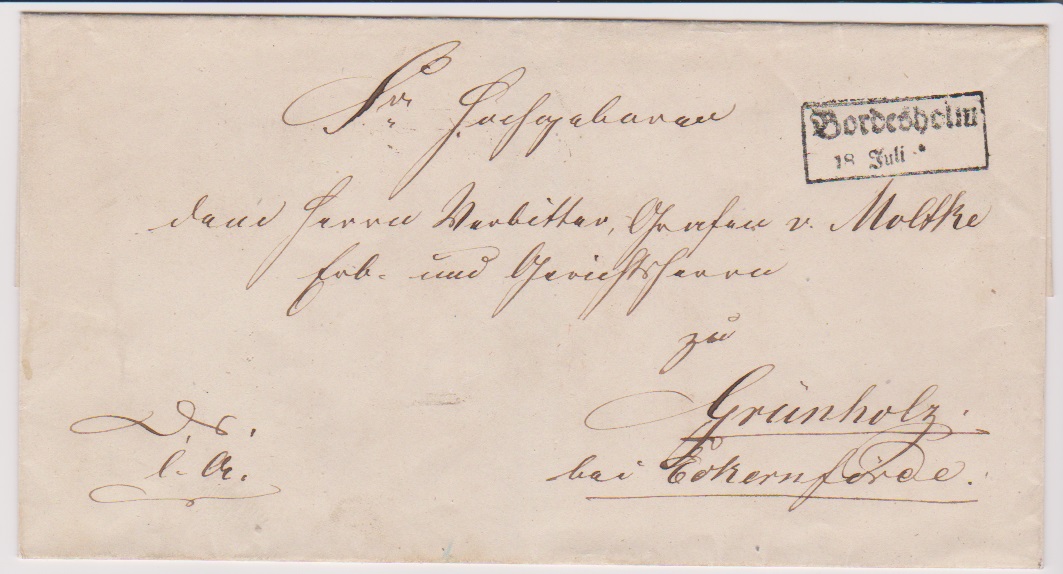 Sr Hochgeboren
Bordesholm
18 Juli
dem Herrn Verbitter, Grafen v. Moltke
Erb- und Gerichtsherrn
zu
Grünholz.
bei Eckernförde.